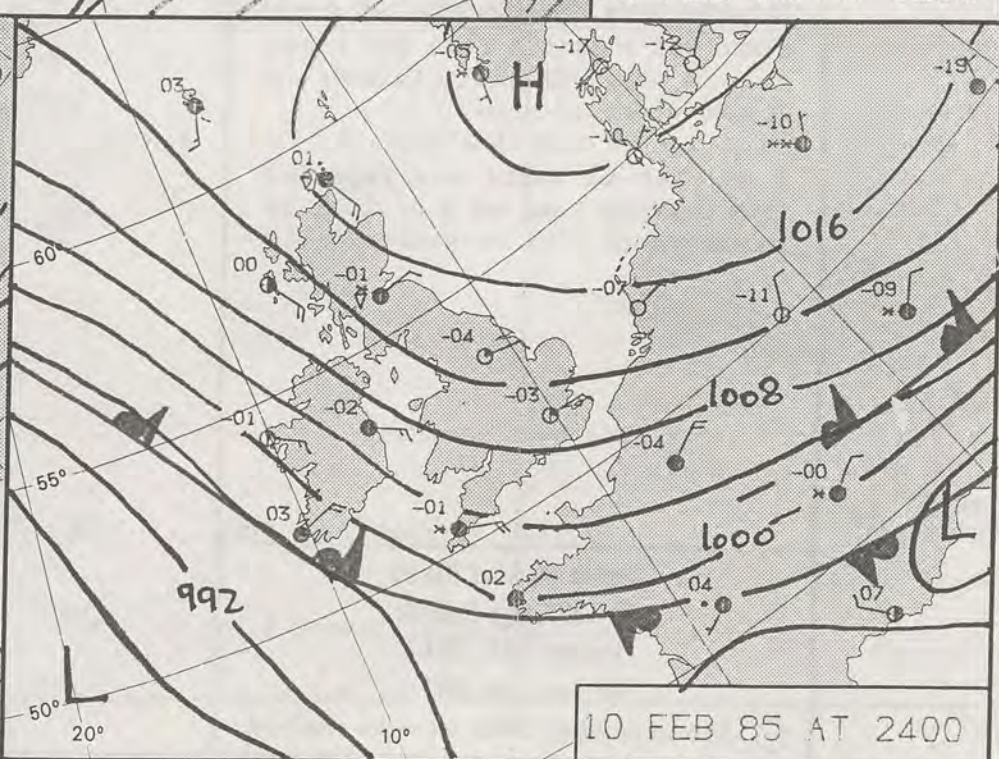 -05
H
-17
-12
-19
03
-10
-10
01
1016
60°
00
-01
-07
-11
-09
-04
1008
-03
-01
-02
-04
55°
-00
03
-01
1000
L
02
04
07
992
L
50°
20°
10°
10 FEB 85 AT 2400